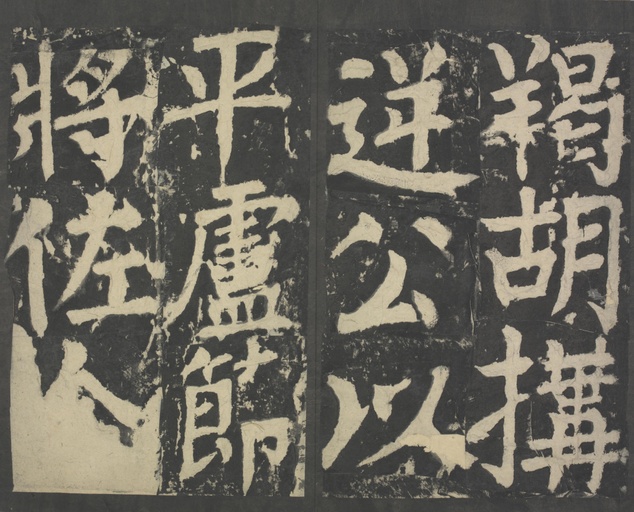 羯胡搆
逆公以
平盧節
將佐人